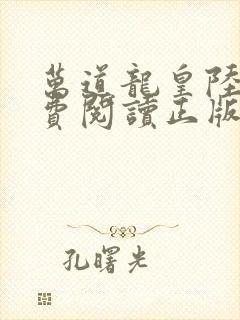 萬道龍皇陸
費閱讀正版
孔曙光